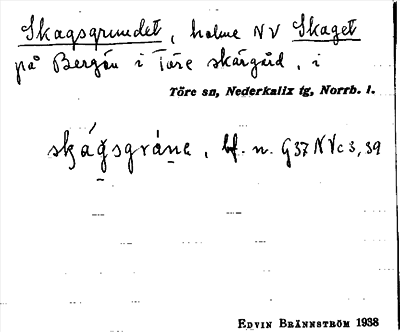 Skagsgrundet, holme NV Skaget
på Bergön i Töre skärgård, i
Töre sn, Nederkalix tg, Norrb. l.
skágsgrùne, bf. n. G37NVc3,39
EDVIN BRÄNNSTRÖM 1938